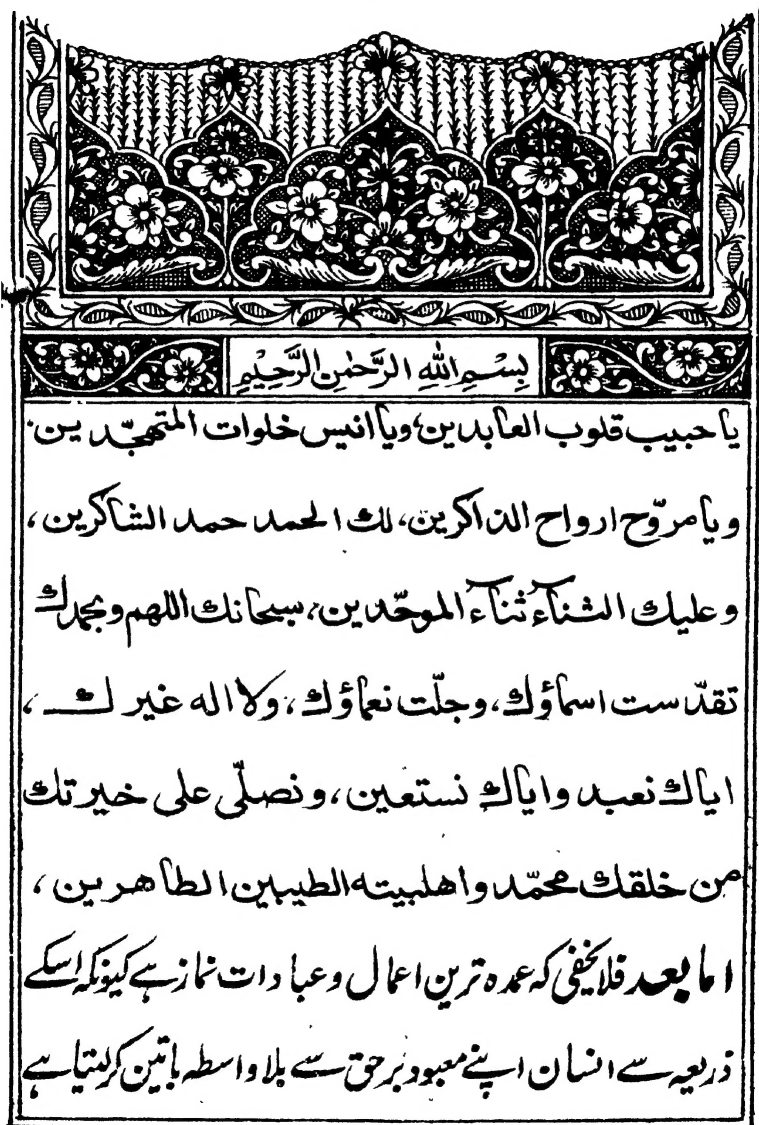 بِسْمِ اللهِ الرَّحْمٰنِ الرَّحِيْمِ
يا حبيب قلوب العابدين، ويا انيس خلوات المتهجّدين۔
ويا مروّح ارواح الذاكرين، لك الحمد حمد الشاكرين،
وعليك الثناء ثناء الموحّدين، سبحانك اللهم وبحمدك
تقدّست اسماؤك، وجلّت نعماؤك، ولا اله غيرك،
اياك نعبد واياك نستعين، ونصلّى على خيرتك
من خلقك محمّد واهلبيته الطيبين الطاهرين،
اما بعد فلا يخفى كه عمده ترين اعمال وعبادات نماز ہے کیونکہ اسکے
ذریعہ سے انسان اپنے معبود برحق سے بلا واسطہ باتین کر لیتا ہے